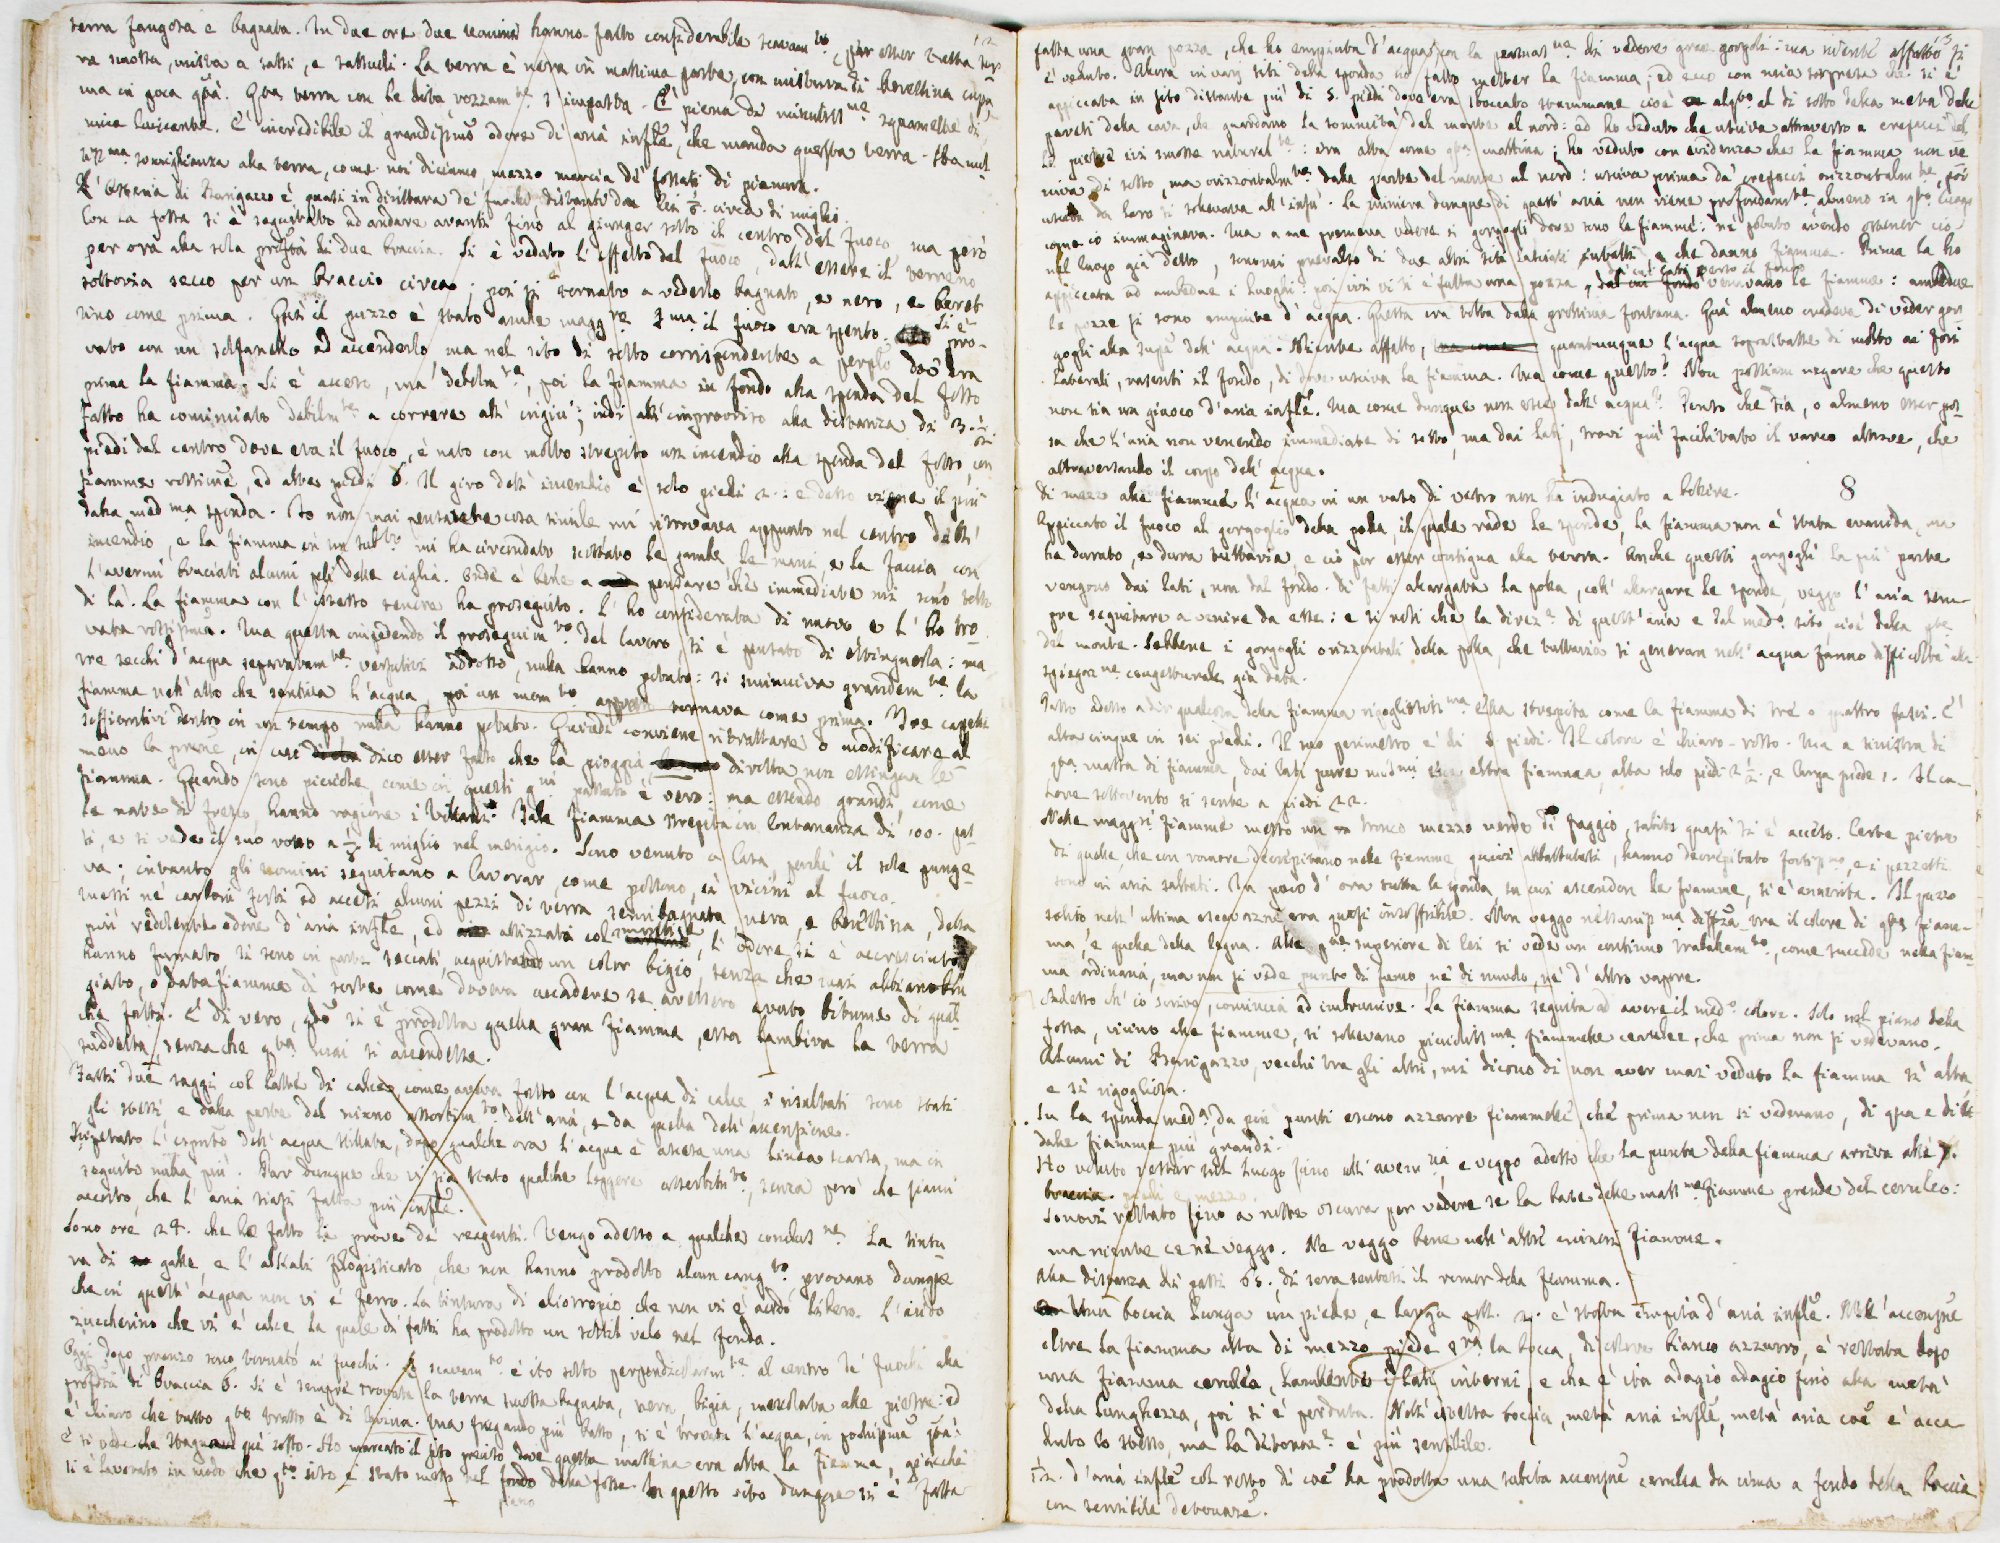 terra fangosa e bagnata. In due ore due uomini hanno fatto considerabile scavam.to, per esser detta ter-
ra smossa, mista a sassi, e sassuoli. La terra è nera in massima parte, con mistura di berettina cupa,
ma in poca q.tà. Q.ta terra con le dita vozzam.te s'impasta. È piena di minutiss.me squamette di
mica luccicante. È incredibile il grandissimo odore di aria infl.e, che manda questa terra. Ha mol-
tiss.ma somiglianza alla terra, come noi diciamo, mezzo marcia de' fossati di pianura.
L'osteria di Barigazzo è quasi in dirittura de' fuochi distanti da lei 1/8 circa di miglio.
Con la fossa si è seguitato ad andare avanti sino al giunger sotto il centro del fuoco, ma però
per ora alla sola prof.tà di due braccia. Si è veduto l'effetto del fuoco, dall'essere il terreno
sottovia secco per un braccio circa; poi si è tornato a vederlo bagnato, e nero, e beret-
tino come prima. Quivi il puzzo è stato anche magg.re. 2.ma il fuoco era spento. Si è pro-
vato con un solfanello ad accenderlo, ma nel sito di sotto corrispondente a dov'era
prima la fiamma. Si è acceso, ma debolm.te, poi la fiamma in fondo alla sponda del fosso
fatto ha cominciato debolm.te a correre all'ingiù; indi all'improvviso alla distanza di 3. 1/2
piedi dal centro dove era il fuoco, è nato con molto strepito un incendio alla sponda del fosso, con
fiamme rossicce, ed alte piedi 6. Il giro dell'incendio è solo piedi 2.: e detto viene il più
dalla med.ma sponda. Io non mai pensando cosa simile mi ritrovava appunto nel centro dell'
incendio, e la fiamma in un sub.to mi ha circondato scottato le gambe, le mani, e la faccia con
l'avermi bruciati alcuni peli delle ciglia. Onde è bene a pensare che immediate mi sono tolto
di là. La fiamma con l'istesso tenore ha proseguito. L'ho considerata di nuovo e l'ho tro-
vata rossissima. Ma questa impedendo il proseguim.to del lavoro, si è pensato di estinguerla: ma
tre secchi d'acqua separatam.te versativi addosso, nulla hanno potuto: si sminuiva grandem.te la
fiamma nell'atto che sentiva l'acqua, poi un mom.to appresso tornava come prima. Tre cappelli
soffiantivi dentro in un tempo nulla hanno potuto. Quindi conviene ritrattare o modificare al
meno la prima, in cui dico esser falso che la pioggia dirotta non estingua le
fiamma. Quando sono picciole, come in questi q.ni passato è vero: ma essendo grandi, come
le nate di fresco, hanno ragione i Villani. Tale fiamma strepita in lontananza di 100. pas-
si, e si vede il suo rosso a 1/8 di miglio nel merigio. Sono venuto a casa, perchè il sole punge-
va; intanto gli uomini seguitano a lavorar, come possono, sì vicini al fuoco.
Messi ne' carboni fossi ed accesi alcuni pezzi di terra semibagnata nera, e berettina, della
più redolente odore d'aria infl.e, ed attizzati col mantice, l'odore si è accresciuto,
hanno fumato si sono in parte seccati, acquistando un color bigio, senza che mai abbiano bru
giato, o data fiamme di sorte come doveva accadere se avessero avuto bitume di qual-
che fatta. È di vero, q.do si è prodotta quella gran fiamma, essa lambiva la terra
suddetta, senza che q.ta mai si accendesse.
Fatti due saggi col latte di calce, come aveva fatto con l'acqua di calce i risultati sono stati
gli stessi e dalla parte del niuno assorbim.to dell'aria, e da quella dell'accensione.
Ripetuto l'esperim.to dell'acqua stillata, dopo qualche ora l'acqua è ascesa una linea scarsa, ma in
seguito nulla più. Par dunque che vi sia stato qualche leggiere assorbim.to, senza però che siami
accorto, che l'aria siasi fatta più infl.e.
Sono ore 24. che ho fatto le prove de' reagenti. Vengo adesso a qualche conclus.ne. La tintu-
ra di galle, e l'alkali flogisticato, che non hanno prodotto alcun cang.to provano dunque
che in quest'acqua non vi è ferro. La tintura di eliotropio che non vi è acido libero. L'acido
zuccherino che vi è calce la quale di fatti ha prodotto un sottil velo nel fondo.
Oggi dopo pranzo sono tornato ai fuochi. Lo scavam.to è ito sotto perpendicolarm.te al centro de' fuochi alla
prof.tà di braccia 6. Si è sempre trovata la terra smossa bagnata, nera, bigia, mescolata alle pietre: ed
è chiaro che tutto q.to tratto è di lavina. Ma fregando più basso, si è trovata l'acqua, in pochissima q.tà:
e si vede che stagnava già sotto. Ho marcato il sito preciso dove questa mattina era alta la fiamma, giacchè
si è lavorato in modo che q.to sito è stato messo nel fondo della fossa. In questo sito dunque si è fatta
piano
13
fatta una gran pozza, che ho empiuta d'acqua con la persuas.ne di vedere gran gorgoli: ma niente affatto si
è veduto. Allora in varj siti della sponda ho fatto metter la fiamma; ed ecco con mia sorpresa che si è
appiccata in sito distante più di 5. piedi dove era sboccato stammane cioè alq.to al di sotto della metà delle
pareti della cava, che guardano la sommità del monte al nord: ed ho veduto che usciva attraverso a crefacci del
le pietre ivi smosse natural.te: era alta come q.ta mattina; ho veduto con evidenza che la fiamma non ve
niva di sotto, ma orizzontalm.te dalla parte del monte al nord: usciva prima da' crefacci orizzontalm.te, poi
uscita da loro si sollevava all'insù. La miniera dunque di quest'aria non viene profondam.te almeno in q.to luogo
come io immaginava. Ma a me premeva vedere si gorgogli dove sono le fiamme: nè potuto avendo ottener ciò
nel luogo già detto, sonomi prevalso di due altri siti lasciati intatti, e che danno fiamme. Prima la ho
appiccata ad ambedue i luoghi: poi ivi vi si è fatta una pozza, dai cui lati verso il fondo venivano le fiamme: ambedue
le pozze si sono empiute d'acqua. Questa era tolta dalla prossima fontana. Quà almeno credeva di veder gor
gogli alla sup.e dell'acqua. Niente affatto, quantunque l'acqua soprastasse di molto ai fori
laterali, rasenti il fondo, di dove usciva la fiamma. Ma come questo? Non possiam negare che questo
non sia un giuoco d'aria infl.e. Ma come dunque non esce dall'acqua? Penso che sia, o almeno esser pos-
sa che l'aria non venendo immediate di sotto, ma dai lati, trovi più facilitato il varco altrove, che
attraversando il corpo dell'acqua.
Di mezzo alle fiamme l'acqua in un vaso di vetro non ha indugiato a bollire. 8
Appiccato il fuoco al gorgoglio della polla, il quale rade le sponde, la fiamma non è stata evanida, ma
ha durato, e dura tuttavia, e ciò per esser contigua alla terra. Anche questi gorgogli la più parte
vengono dai lati, non dal fondo. Di fatti alargata la polla, coll'alargare le sponde, veggo l'aria sem-
pre seguitare a venire da esse: e si noti che la direz.e di quest'aria e dal med.o sito, cioè della q.te
del monte. Sebbene i gorgogli orizzontali della polla, che tuttavia si generan nell'acqua fanno difficoltà alla
spiegaz.ne congetturale già data.
Fatto adesso a dir qualcosa della fiamma rigogliosiss.ma. Ella strepita come la fiamma di tre o quattro fassi. È
alta cinque in sei piedi. Il suo perimetro è di 8 piedi. Il colore è chiaro-rosso. Ma a sinistra di
q.ta massa di fiamma, dai lati pure un'altra fiamma, alta solo piedi 2 1/2 e larga piede 1. Il ca-
lore sottovento si sente a piedi 22.
Nelle magg.ri fiamme messo un tronco mezzo verde di faggio, subito quasi si è acceso. Certe pietre
di quelle che con romore decrepitano nelle fiamme quivi abbattutesi, hanno decrepitato fortiss.mo, e i pezzetti
sono in aria saltati. In poco d'ora tutta la sponda su cui ascendon le fiamme, si è annerita. Il puzzo
solito nell'ultima escavaz.ne era quasi insoffribile. Non veggo nessunis.ma diff.za tra il colore di q.ta fiam-
ma, e quella della legna. Alla p.te superiore di lei si vede un continuo traballam.to, come succede nella fiam-
ma ordinaria, ma non si vede punto di fumo, nè di nuvolo, nè d'altro vapore.
Adesso ch'io scrivo, comincia ad imbrunire. La fiamma seguita ad avere il med.o colore. Solo nel piano della
fossa, vicino alle fiamme, si sollevano picciolis.me fiammelle cerulee, che prima non si vedevano.
Alcuni di Barigazzo, vecchi tra gli altri, mi dicono di non aver mai veduto la fiamma sì alta,
e sì rigogliosa.
Su la sponda med.a, da più punti escono azzurre fiammelle che prima non si vedevano, di qua e di là
dalle fiamme più grandi.
Ho voluto restar sul luogo fino all'avem.ria e veggo adesso che la punta della fiamma arriva alle 7.
piedi e mezzo.
Sonovi restato sino a notte oscura per vedere se la base delle mass.me fiamme prende del ceruleo:
ma niente ce ne veggo. Ne veggo bene nell'altre minori fiamme.
Alla distanza di passi 65. di sera sentesi il romor della fiamma.
Una boccia lunga un piede, e larga poll. 2. è stata empiuta d'aria infl.e. Nell'accens.ne
oltre la fiamma alta di mezzo piede s.ra la bocca, di colore bianco azzurro, è restata dopo
una fiamma cerulea, lambente i lati interni, e che è ita adagio adagio fino alla metà
della lunghezza, poi si è perduta. Nell'istessa boccia, metà aria infl.e, metà aria co.e è acca-
duto lo stesso, ma la detonaz.e è più sensibile.
1/12. d'aria infl.e col resto di co.e ha prodotta una subita accens.ne cerulea da cima a fondo della boccia
con sensibile detonaz.e.